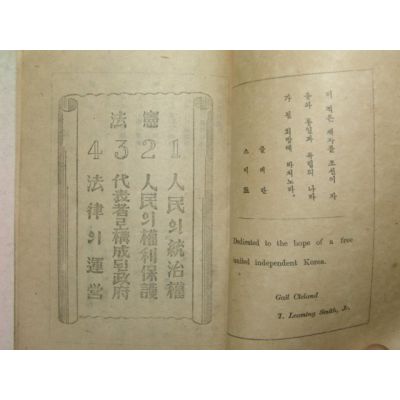 이 적은 책자를 조선이 자
통일과 독립의 나라
가 될 희망에 바치노라.
클레란
스미트
Dedicated to the hope of a free
united independent Korea.
Gail Cleland
T. Leeming Smith, Jr.
憲法
1 人民의 統治權
2 人民의 權利保護
3 代表者로 構成된 政府
4 法律의 運営